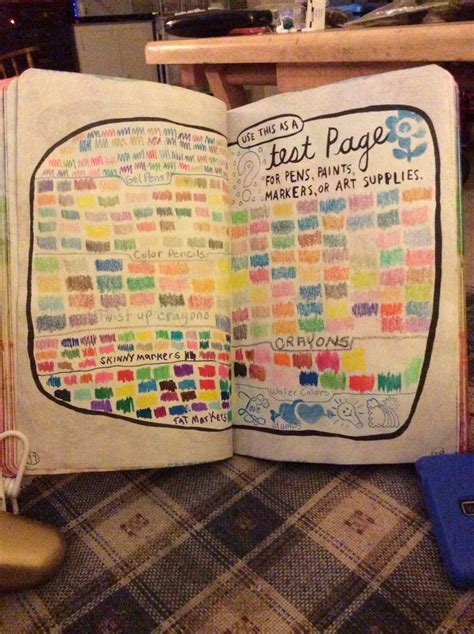 Gel Pens!!
Color Pencils
Twist up crayons
SKINNY MARKERS
FAT MARKERS
USE THIS AS A
test Page
FOR PENS, PAINTS,
MARKERS, OR ART SUPPLIES.
CRAYONS
Water Colors
Stamps